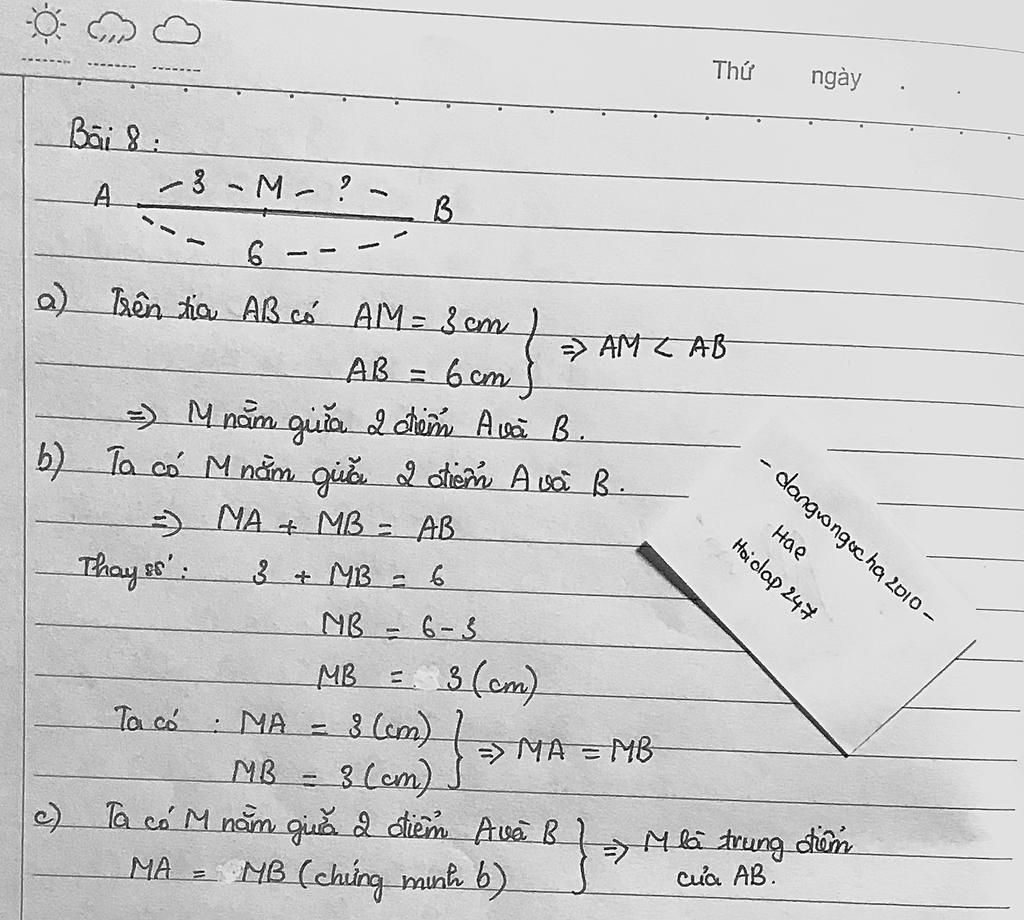 Thứ ngày . .
Bài 8:
A - 3 - M - ? - B
6
a) Trên tia AB có AM = 3 cm
AB = 6 cm } => AM < AB
=> M nằm giữa 2 điểm A và B.
b) Ta có M nằm giữa 2 điểm A và B.
=> MA + MB = AB
Thay số: 3 + MB = 6
MB = 6 - 3
MB = 3 (cm)
Ta có: MA = 3 (cm)
MB = 3 (cm) } => MA = MB
c) Ta có M nằm giữa 2 điểm A và B
MA = MB (chứng minh b) } => M là trung điểm
của AB.
- dangvongocha2010 -
Hae
Hoidap247